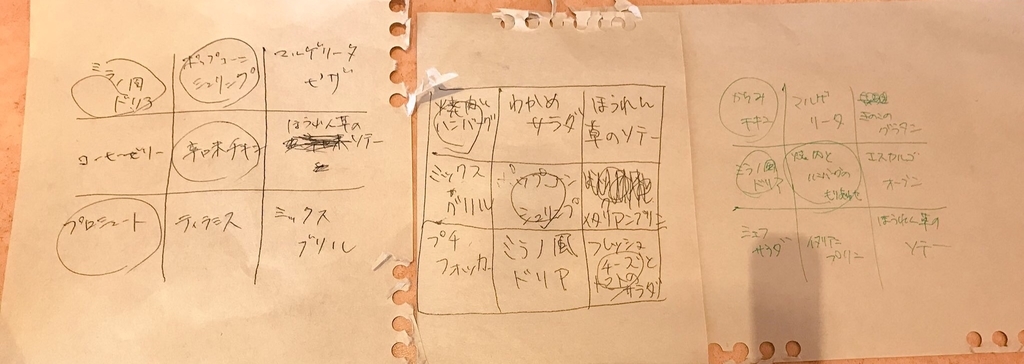 ミラノ風
ドリア
ポップコーン
シュリンプ
マルゲリータ
ピザ
コーヒーゼリー
辛味チキン
ほうれん草の
ソテー
プロシュート
ティラミス
ミックス
グリル
焼肉
ハンバーグ
わかめ
サラダ
ほうれん
草のソテー
ミックス
グリル
ポップコーン
シュリンプ
イタリアンプリン
プチ
フォッカ
ミラノ風
ドリア
フレッシュ
チーズと
トマトの
サラダ
からみ
チキン
マルゲ
リータ
きのこの
グラタン
ミラノ風
ドリア
焼肉と
ハンバーグの
もりあわせ
エスカルゴ
オーブン
サラダ
イタリアン
プリン
ほうれん草の
ソテー